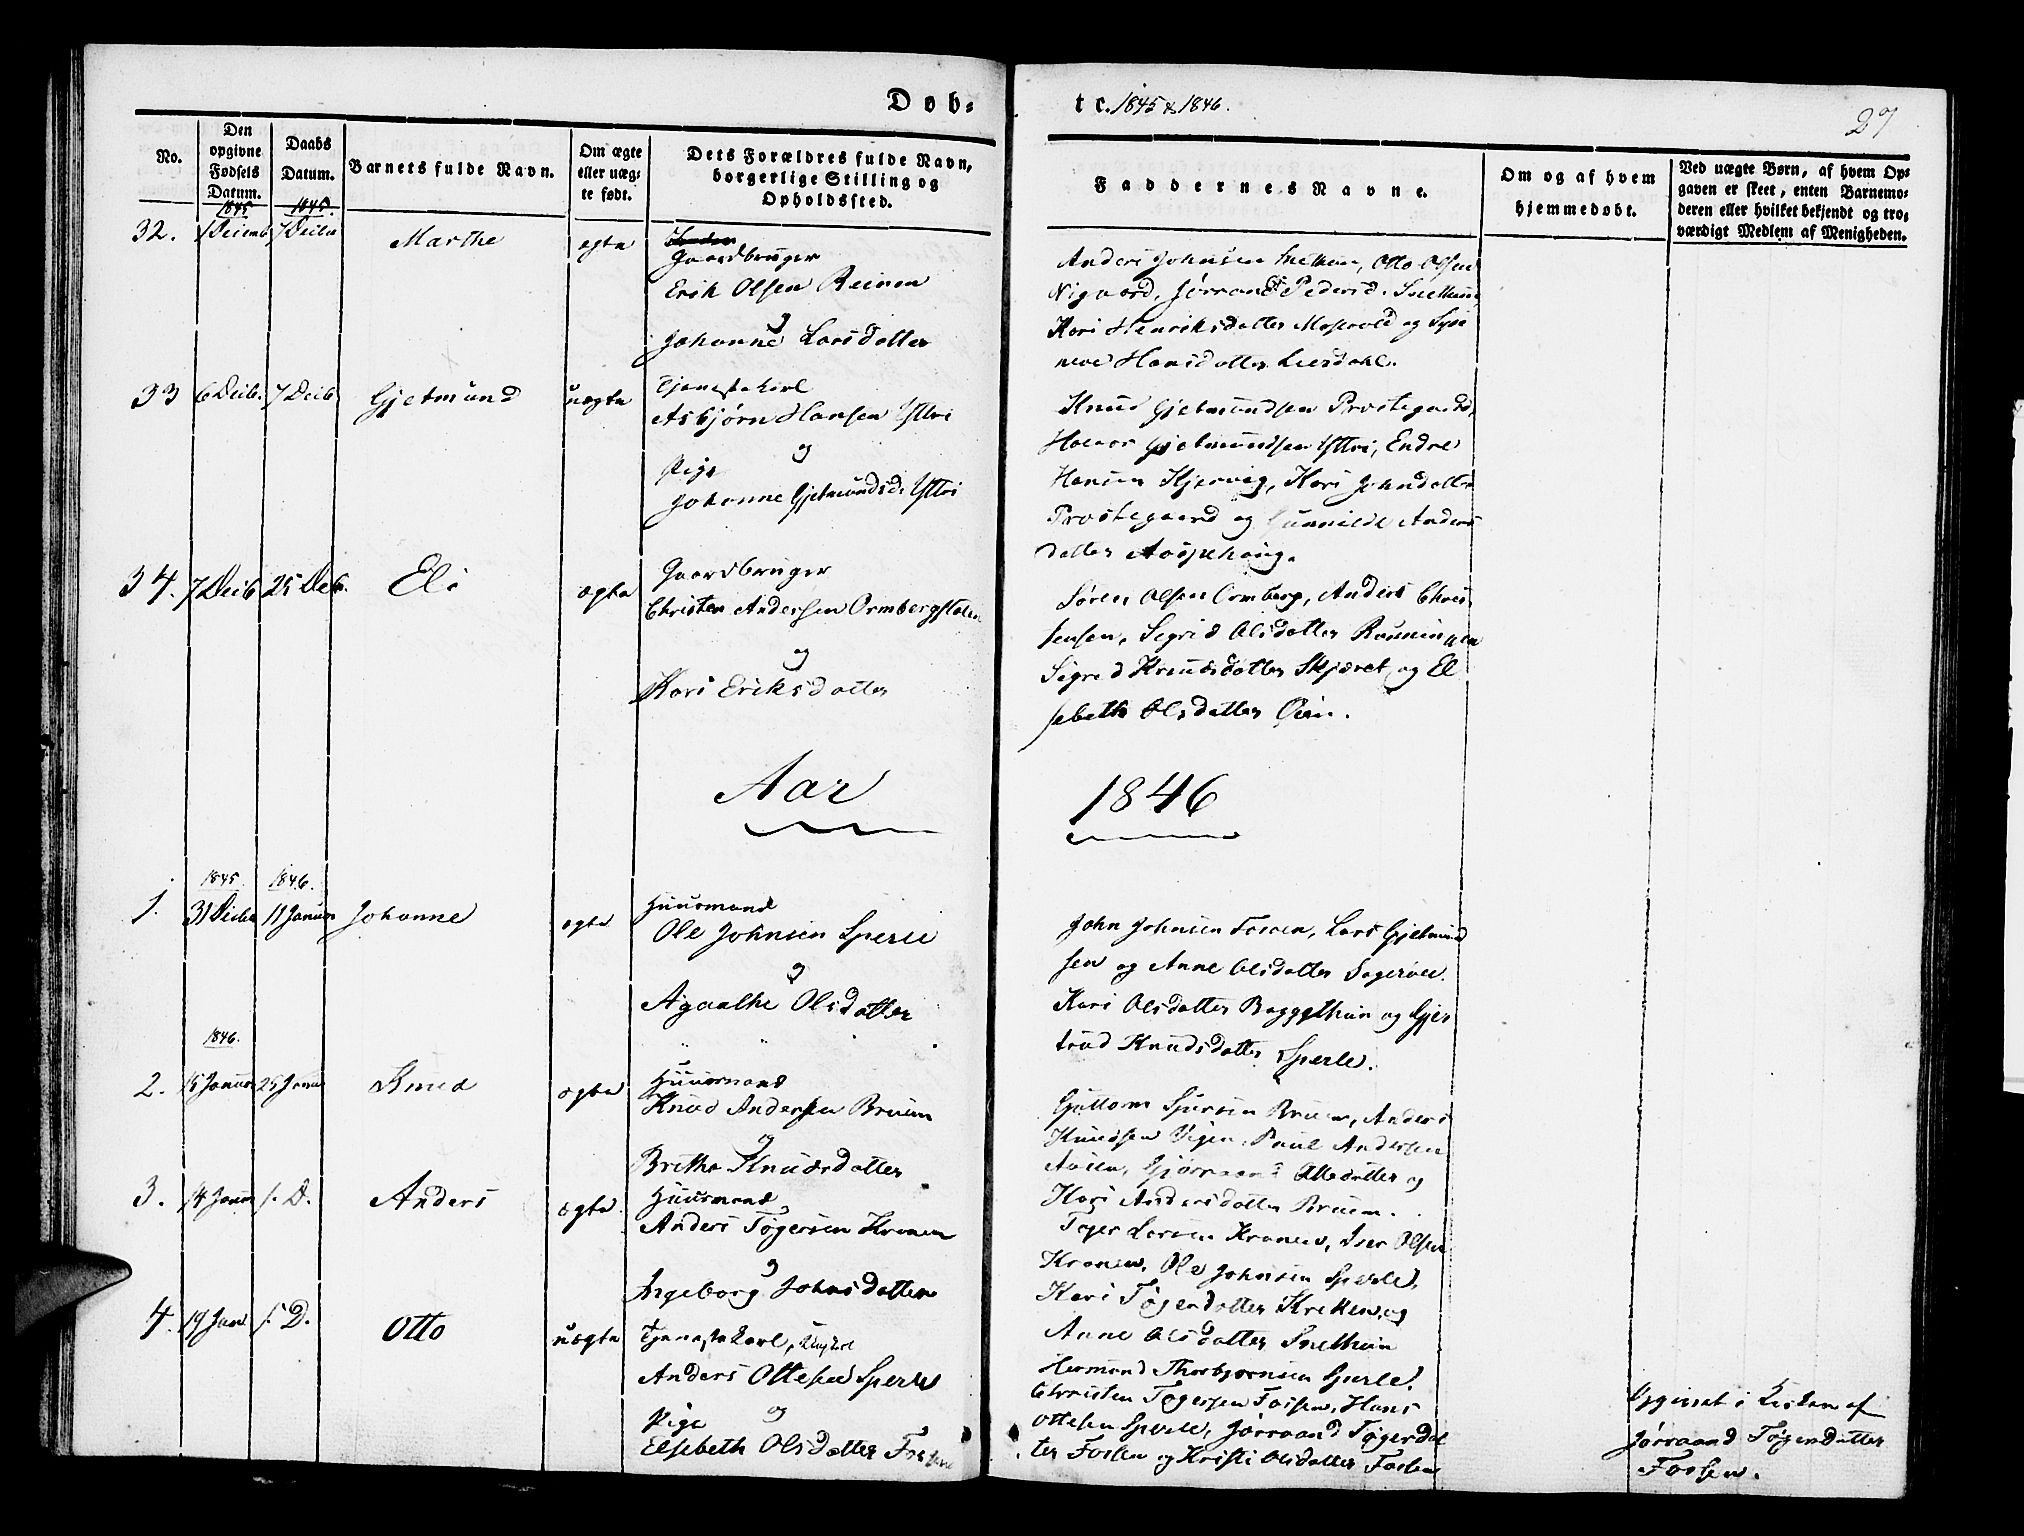 Døb-
te. 1845 & 1846.
27
No.
Den opgivne Fødsels Datum.
Daabs Datum.
Barnets fulde Navn.
Om ægte eller uægte født.
Dets Forældres fulde Navn, borgerlige Stilling og Opholdssted.
Faddernes Navne.
Om og af hvem hjemmedøbt.
Ved uægte Børn, af hvem Opgaven er skeet, enten Barnemoderen eller hvilket bekjendt og troværdigt Medlem af Menigheden.
1845 1845
32. 1 Decemb 7 Decbr Marthe ægte
Gaardbruger
Erik Olsen Reinen
og
Johanne Larsdatter
Anders Johnsen Snethun, Otto Olsen
Nigaard, Jørrand Pedersd. Snethun,
Kari Henriksdatter Mosevold og Syn
neve Hansdatter Liesdahl.
33 6 Decb. 7 Decb Gjetmund uægte
Tjenestekarl
Asbjørn Hansen Yttri
og
Pige
Johanne Gjetmundsd: Yttri
Knud Gjetmundsen Prostegaard,
Halvor Gjetmundsen Yttri, Endre
Hansen Kjervig, Kari Johnsdatter
Prostegaard og Gunnilde Anders
datter Aasehoug.
34. 7 Decb 25 Decb. Eli ægte
Gaardbruger
Christen Andersen Ormbergstolen
og
Kari Eriksdatter
Søren Olsen Ormberg, Anders Chris
tensen, Sigrid Olsdatter Rønningen
Sigrid Knudsdatter Skjæret og El
sebeth Olsdatter Øien.
Aar 1846
1845. 1846.
1. 31 Decbr 11 Januar Johanne ægte
Huusmand
Ole Johnsen Sperle
og
Agaathe Olsdatter
John Johnsen Fossen, Lars Gjetmund
sen og Anne Olsdatter
Kari Olsdatter Baggethun og Gjer
trud Knudsdatter Sperle.
1846.
2. 15 Januar 25 Janu Knud ægte
Huusmand
Knud Andersen Bruum
og
Britha Knudsdatter
Guttorm Sjursen Bruum, Anders
Knudsen Vigen, Paul Andersen
Aasen, Gjørrand Ottesdatter og
Kari Andersdatter Bruum.
3. 14 Januar s. D. Anders ægte
Huusmand
Anders Tøgersen Kronen
og
Ingeborg Johnsdatter
Tøger Larsen Kronen, Iver Olsen
Kronen, Ole Johnsen Sperle,
Kari Tøgersdatter Kreken og
Anne Olsdatter Snethun
4. 19 Jan s. D. Otto uægte
Tjenestekarl, Ungkarl
Anders Ottesen Sperle
og
Pige
Elsebeth Olsdatter Fossen
Hermund Thorbjørnsen Sperle,
Christen Tøgersen Fossen, Hans
Ottesen Sperle, Jørraand Tøgersdat
ter Fossen og Kristi Olsdatter Fossen
Opgivet i Kirken af
Jørraand Tøgersdatter
Fossen.